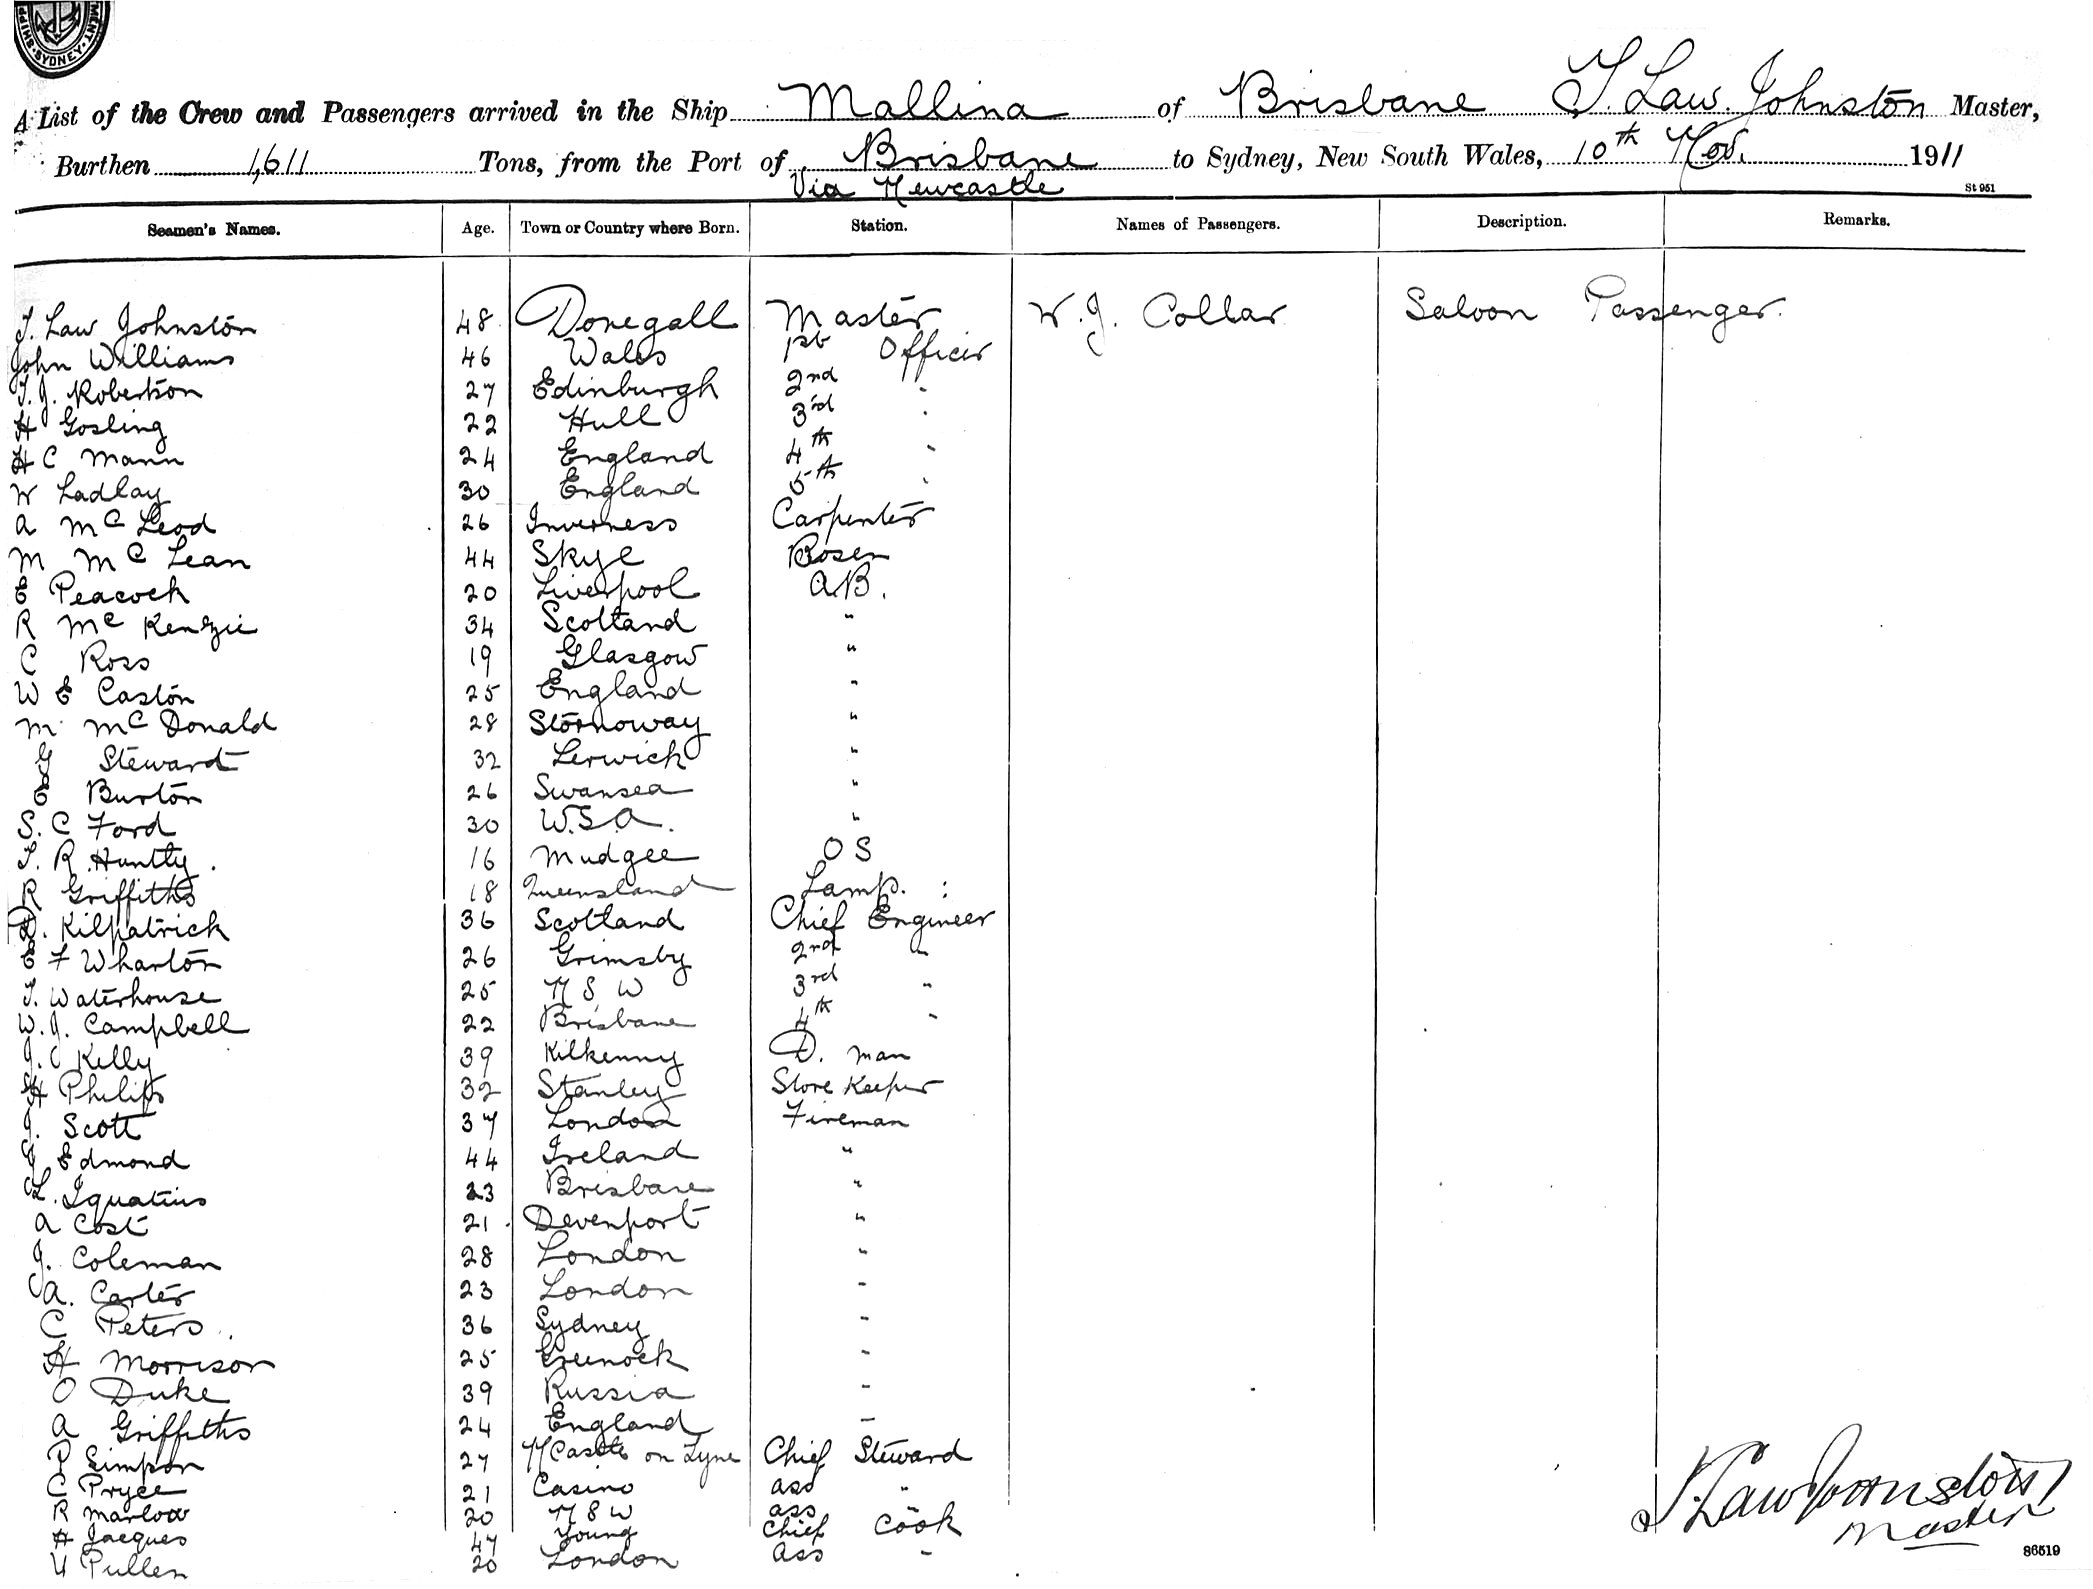 SHIPP
MENT. SYDNEY
A List of the Crew and Passengers arrived in the Ship Mallina of Brisbane T. Law. Johnston Master,
Burthen 1,611 Tons, from the Port of Brisbane to Sydney, New South Wales, 10th Nov. 1911
Via Newcastle
St 951
Seamen's Names. Age. Town or Country where Born. Station. Names of Passengers. Description. Remarks.
T. Law Johnston 48 Donegall Master W. J. Collar Saloon Passenger.
John Williams 46 Wales 1st Officer
T. J. Robertson 27 Edinburgh 2nd "
H Gosling 22 Hull 3rd "
H C Mann 24 England 4th "
W Ladlay 30 England 5th "
A McLeod 26 Inverness Carpenter
M McLean 44 Skye Bosen
E Peacock 20 Liverpool A.B.
R McKenzie 34 Scotland "
C Ross 19 Glasgow "
W E Caston 25 England "
M McDonald 28 Stornoway "
G Steward 32 Lerwick "
E Burton 26 Swansea "
S. C Ford 30 U.S.A. "
T. R Huntly. 16 Mudgee O S
R Griffiths 18 Queensland Lamp. :
D. Kilpatrick 36 Scotland Chief Engineer
E F Wharton 26 Grimsby 2nd "
T. Waterhouse 25 N S W 3rd "
W. J. Campbell 22 Brisbane 4th "
J. C Kelly 39 Kilkenny D. man
H Philips 32 Stanley Store Keeper
J. Scott 37 London Fireman
J Edmond 44 Ireland "
L. Ignatius 23 Brisbane "
A Cost 21 Devenport "
J. Coleman 28 London "
A. Carter 23 London "
C Peters. 36 Sydney "
H Morrison 25 Greenock "
O Duke 39 Russia "
A Griffiths 24 England "
P Simpson 27 N Castle on Tyne Chief Steward
C Pryce 21 Casino ass "
R Marlow 20 N S W ass "
H Jacques 47 Young Chief Cook
U Pullen 20 London Ass "
T. Law Johnston
Master
86519